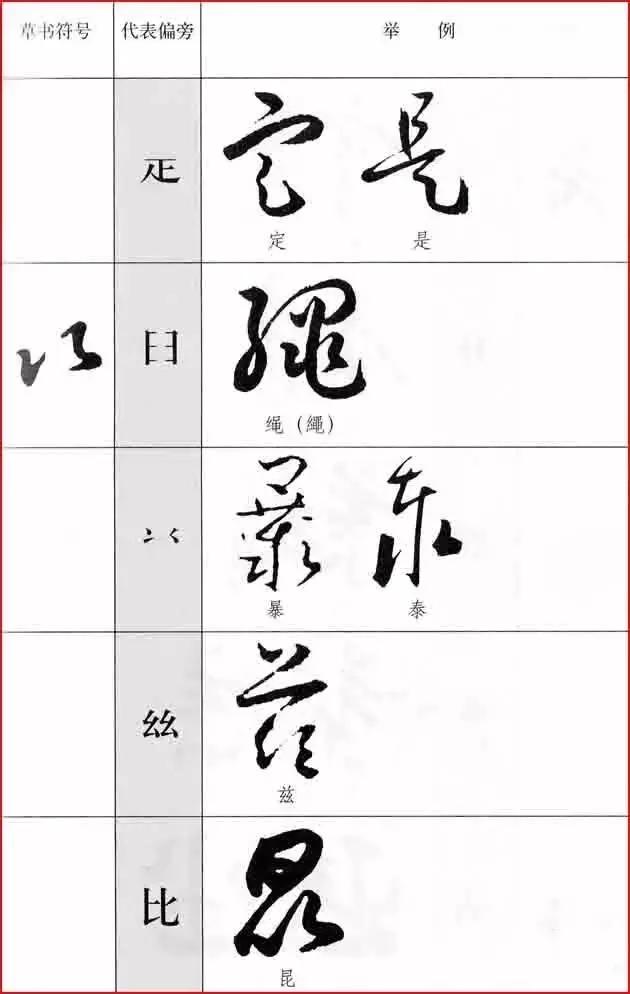 草书符号 代表偏旁 举 例
𤴓
定 是
绳（繩）
暴 泰
玆
兹
比
昆